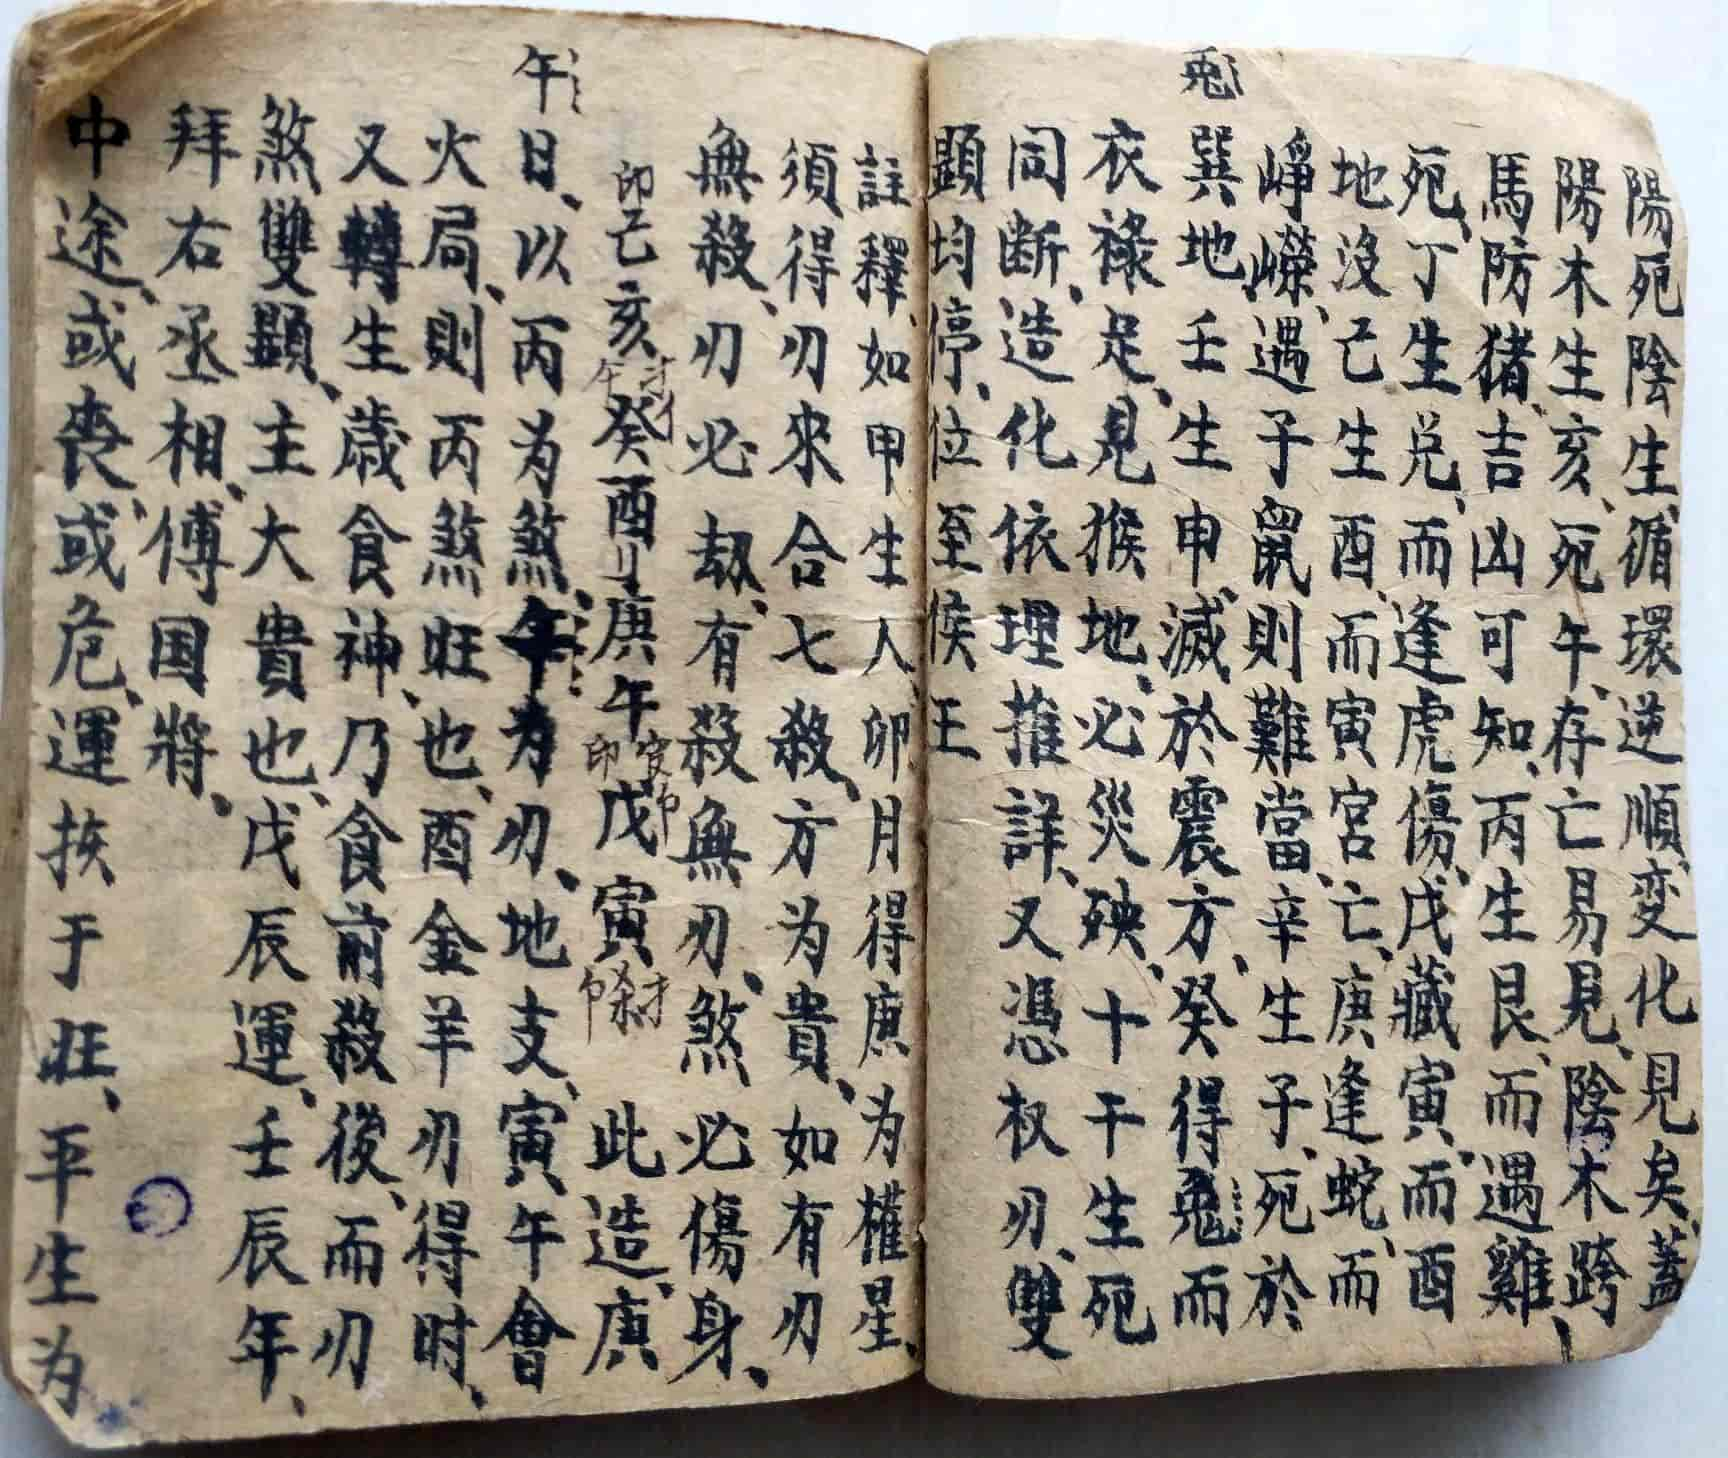 陽死陰生、循環逆順、变化見矣、蓋
陽木生亥、死午、存亡易見、陰木跨
馬防猪、吉凶可知、丙生艮、而遇雞
死、丁生兑、而逢虎傷、戊藏寅、而酉
地没己生酉、而寅宮亡、庚逢蛇、而
崢嶸、遇子鼠則難當、辛生子、死於
巽地壬生申、滅於震方、癸得兎而
兎
衣禄足、見猴地、必災殃、十干生死
同断、造化依理推詳、又憑权刃、雙
顕均停、位至侯王
註釋、如甲生人、卯月得庚为權星、
須得刃來合七殺、方为貴、如有刃
無殺、刃必刼、有殺無刃、煞必傷身、
印己亥 癸酉 庚午 戊寅 此造、庚
午
日、以丙为煞、午为刃、地支、寅午會
火局、則丙煞旺也、酉金羊刃得时、
又轉生歳食神、乃食前殺後、而刃
煞雙顕、主大貴也、戊辰運、壬辰年、
拜右丞相、傅国將、
中途、或喪、或危、運挨于旺、平生为